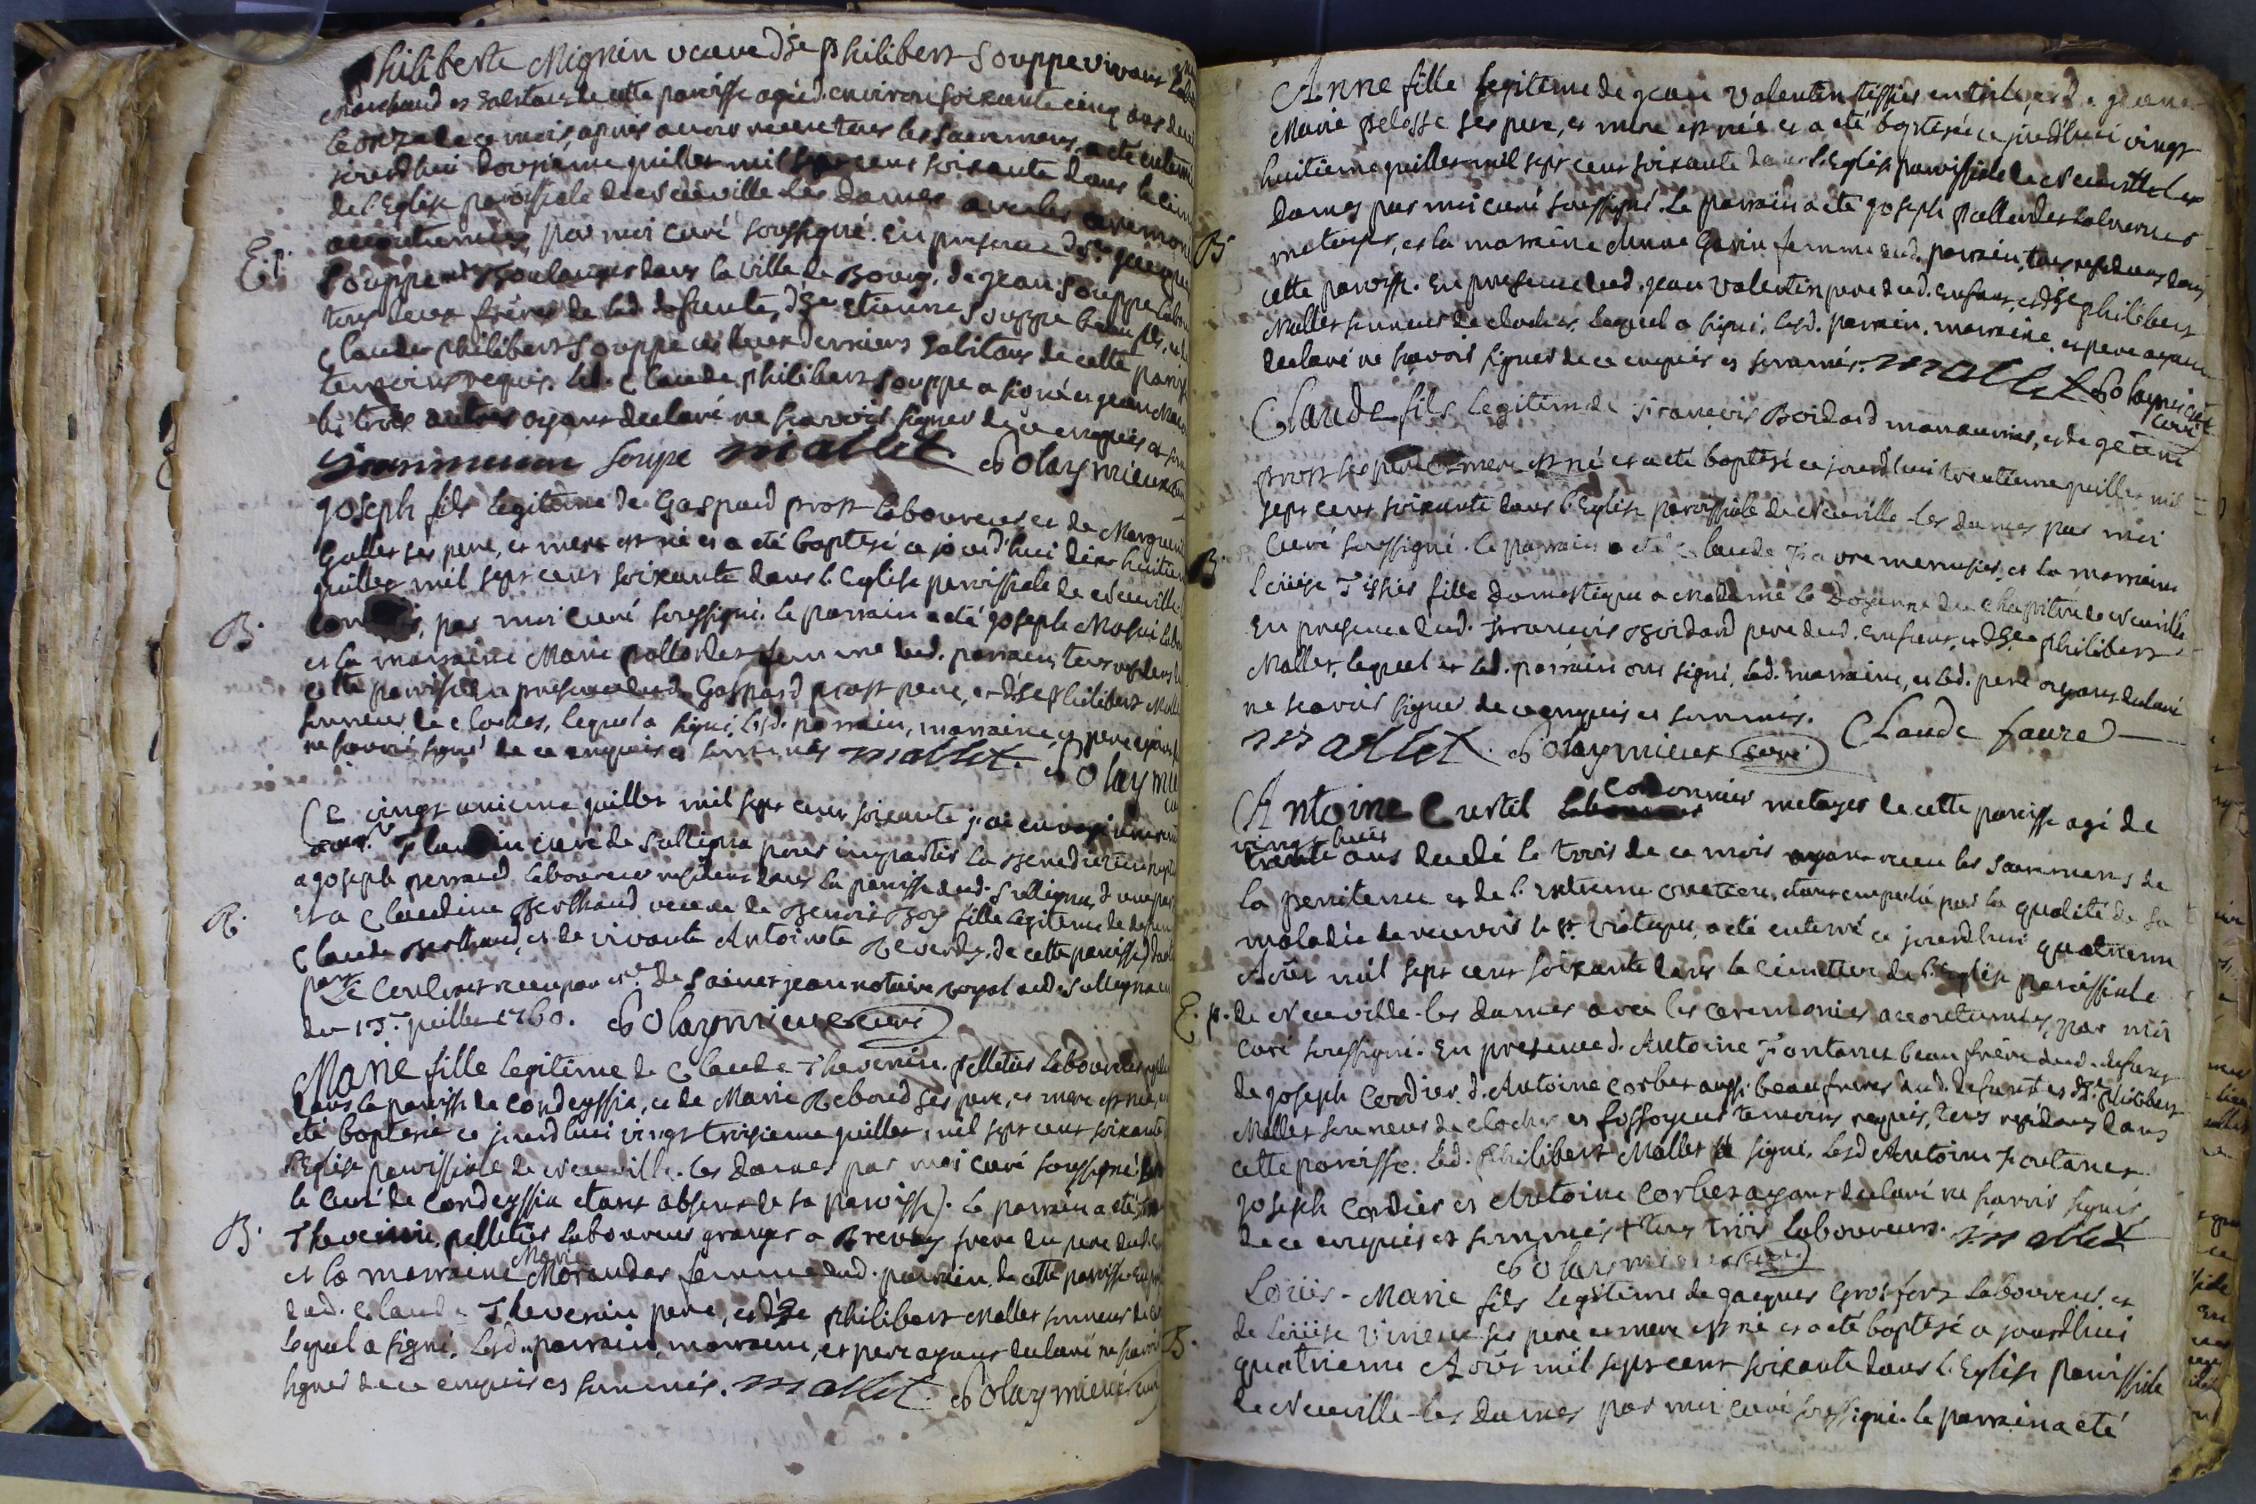 Philiberte Mignin veuve d'hte Philibert Souppe vivant
marchand et habitant de cette paroisse agée d'environ soixante cinq ans
le onze de ce mois, aprés avoir receu tous les sacremens, a eté enterrée
jourdhui douzieme juillet mil sept cent soixante dans le cim
de l'Eglise paroissiale de Neuville les dames avec les ceremon
accoutumées, par moi curé soussigné. En presence d'hte Jacques
E.p.
Souppe Boulanger dans la ville de Bourg, de jean Souppe labou
tous deux frères de lad. defunte, d'hte etienne Souppe beau fils, et de
Claude philibert Souppe ces deux derniers habitans de cette paroiss
temoins requis. Led. Claude philibert Souppe a signé et
les trois autres ayans declaré ne sçavoir signer de ce enquis et som
Soupe mallet Polaymieux curé
joseph fils legitime de Gaspard prost laboureur et de Marguerite
Gallet ses pere, et mere est né et a eté baptisé ce jourd'hui dix huitieme
juillet mil sept cent soixante dans l'Eglise paroissiale de Neuville
B.
par moi curé soussigné. le parrain a eté joseph Mosni labou
et la marraine Marie pallordet femme dud. parrain, tous residens
cette paroisse en presence dud. Gaspard prost pere, et d'hte Philibert Mallet
sonneur de cloches, lequel a signé, lesd. parrain, marraine, et pere ayans
ne savoir signé de ce enquis et sommés mallet. Polaymieux
Ce vingt unieme juillet mil sept cent soixante j'ai envoyé
curé de Sulligna pour impartir la Benediction nuptiale
a joseph perraud laboureur resident dans la paroisse dud. Sulligna, d'une part
R.
et a Claudine Berthaud veuve de Benoit Boy fille legitime de defunt
Claude Berthaud, et de vivante Antoinete Reverdy, de cette paroisse, d'autre
part. Le Contrat receu par Me. de Saint jean notaire royal aud. Sulligna
du 13e. juillet 1760. Polaymieux curé
Marie fille legitime de Claude Thevenin. pelletier laboureur
dans la paroisse de Condeyssia, et de Marie Reboud ses pere, et mere est née, et
eté baptisée ce jourdhui vingt troisieme juillet, mil sept cent soixante
l'Eglise paroissiale de Neuville les dames par moi curé soussigné
le curé de Condeyssia etant absent de sa paroisse). Le parrain a eté
B.
Thevenin pelletier laboureur granger a frere du pere
Marie
et la marraine Morandas femme dud. parrain. de cette paroisse. En
dud. Claude Thevenin pere, et d'hte philibert Mallet sonneur de
lequel a signé. Lesd. parrain, marraine, et pere ayans declaré ne sçavoir
signer de ce enquis et sommés. mallet. Polaymieux curé
Anne fille legitime de jean Valentin tissier en toile et de jeane
Marie pelosse ses pere, et mere est née et a eté baptisée ce jourdhui vingt
huitieme juillet mil sept cent soixante dans l'Eglise paroissiale de Neuville les
dames par moi curé soussigné. Le parrain a eté joseph pallordet laboureur
B.
metayer, et la marraine Anne femme dud. parrain, tous residans dans
cette paroisse. En presence dud. jean Valentin pere dud. enfant, et d'hte philibert
Mallet sonneur de cloches, lequel a signé, lesd. parrain, marraine, et pere ayans
declaré ne savoir signer de ce enquis et sommés. mallet Polaymieux
curé
Claude fils legitime de françois Boidard manœuvrier, et de
prost ses pere et mere est né et a eté baptisé ce jourdhui trentieme juillet mil
sept cent soixante dans l'Eglise paroissiale de Neuville les dames par moi
curé soussigné. le parrain a eté Claude Favre menusier, et la marraine
B.
Louise Tissier fille domestique a Madame la Doyenne du Chapitre de Neuville
En presence dud. françois Boidard pere dud. enfant, et d'hte philibert
Mallet, lequel et led. parrain ont signé, lad. marraine, et led. pere ayans declaré
ne scavoir signer de ce enquis et sommés. Claude faure
mallet. Polaymieux curé
cordonnier
Antoine Curtil metayer de cette paroisse agé de
vingt huit
trente ans decedé le trois de ce mois ayant receu les sacremens de
la penitence et de l'extreme onction, etant empeché par la qualité de sa
maladie de recevoir le st. viatique, a eté enterré ce jourdhui quatrieme
Aoüt mil sept cent soixante dans le cimetiere de l'Eglise paroissiale
E.p.
de Neuville-les dames avec les ceremonies accoutumées, par moi
curé soussigné. En presence d'Antoine Fontanet beau frère dud. defunt
de joseph Cordier, d'Antoine Corbet aussi beau freres dud. defunt et d'hte philibert
Mallet sonneur de cloches et fossoyeur temoins requis, tous residans dans
cette paroisse. Led. philibert Mallet a signé, Lesd Antoine Fontanet
joseph Cordier et Antoine Corbet ayans declaré ne sçavoir signer
de ce enquis et sommés + tous trois laboureurs. mallet
Polaymieux curé
Loüis-Marie fils Legitime de jacques Grosfort Laboureur, et
de Loüise Virieux ses pere et mere est né et a eté baptisé ce jourdhui
B.
quatrieme Aoüt mil sept cent soixante dans l'Eglise paroissiale
de Neuville-les dames par moi curé soussigné. le parrain a eté